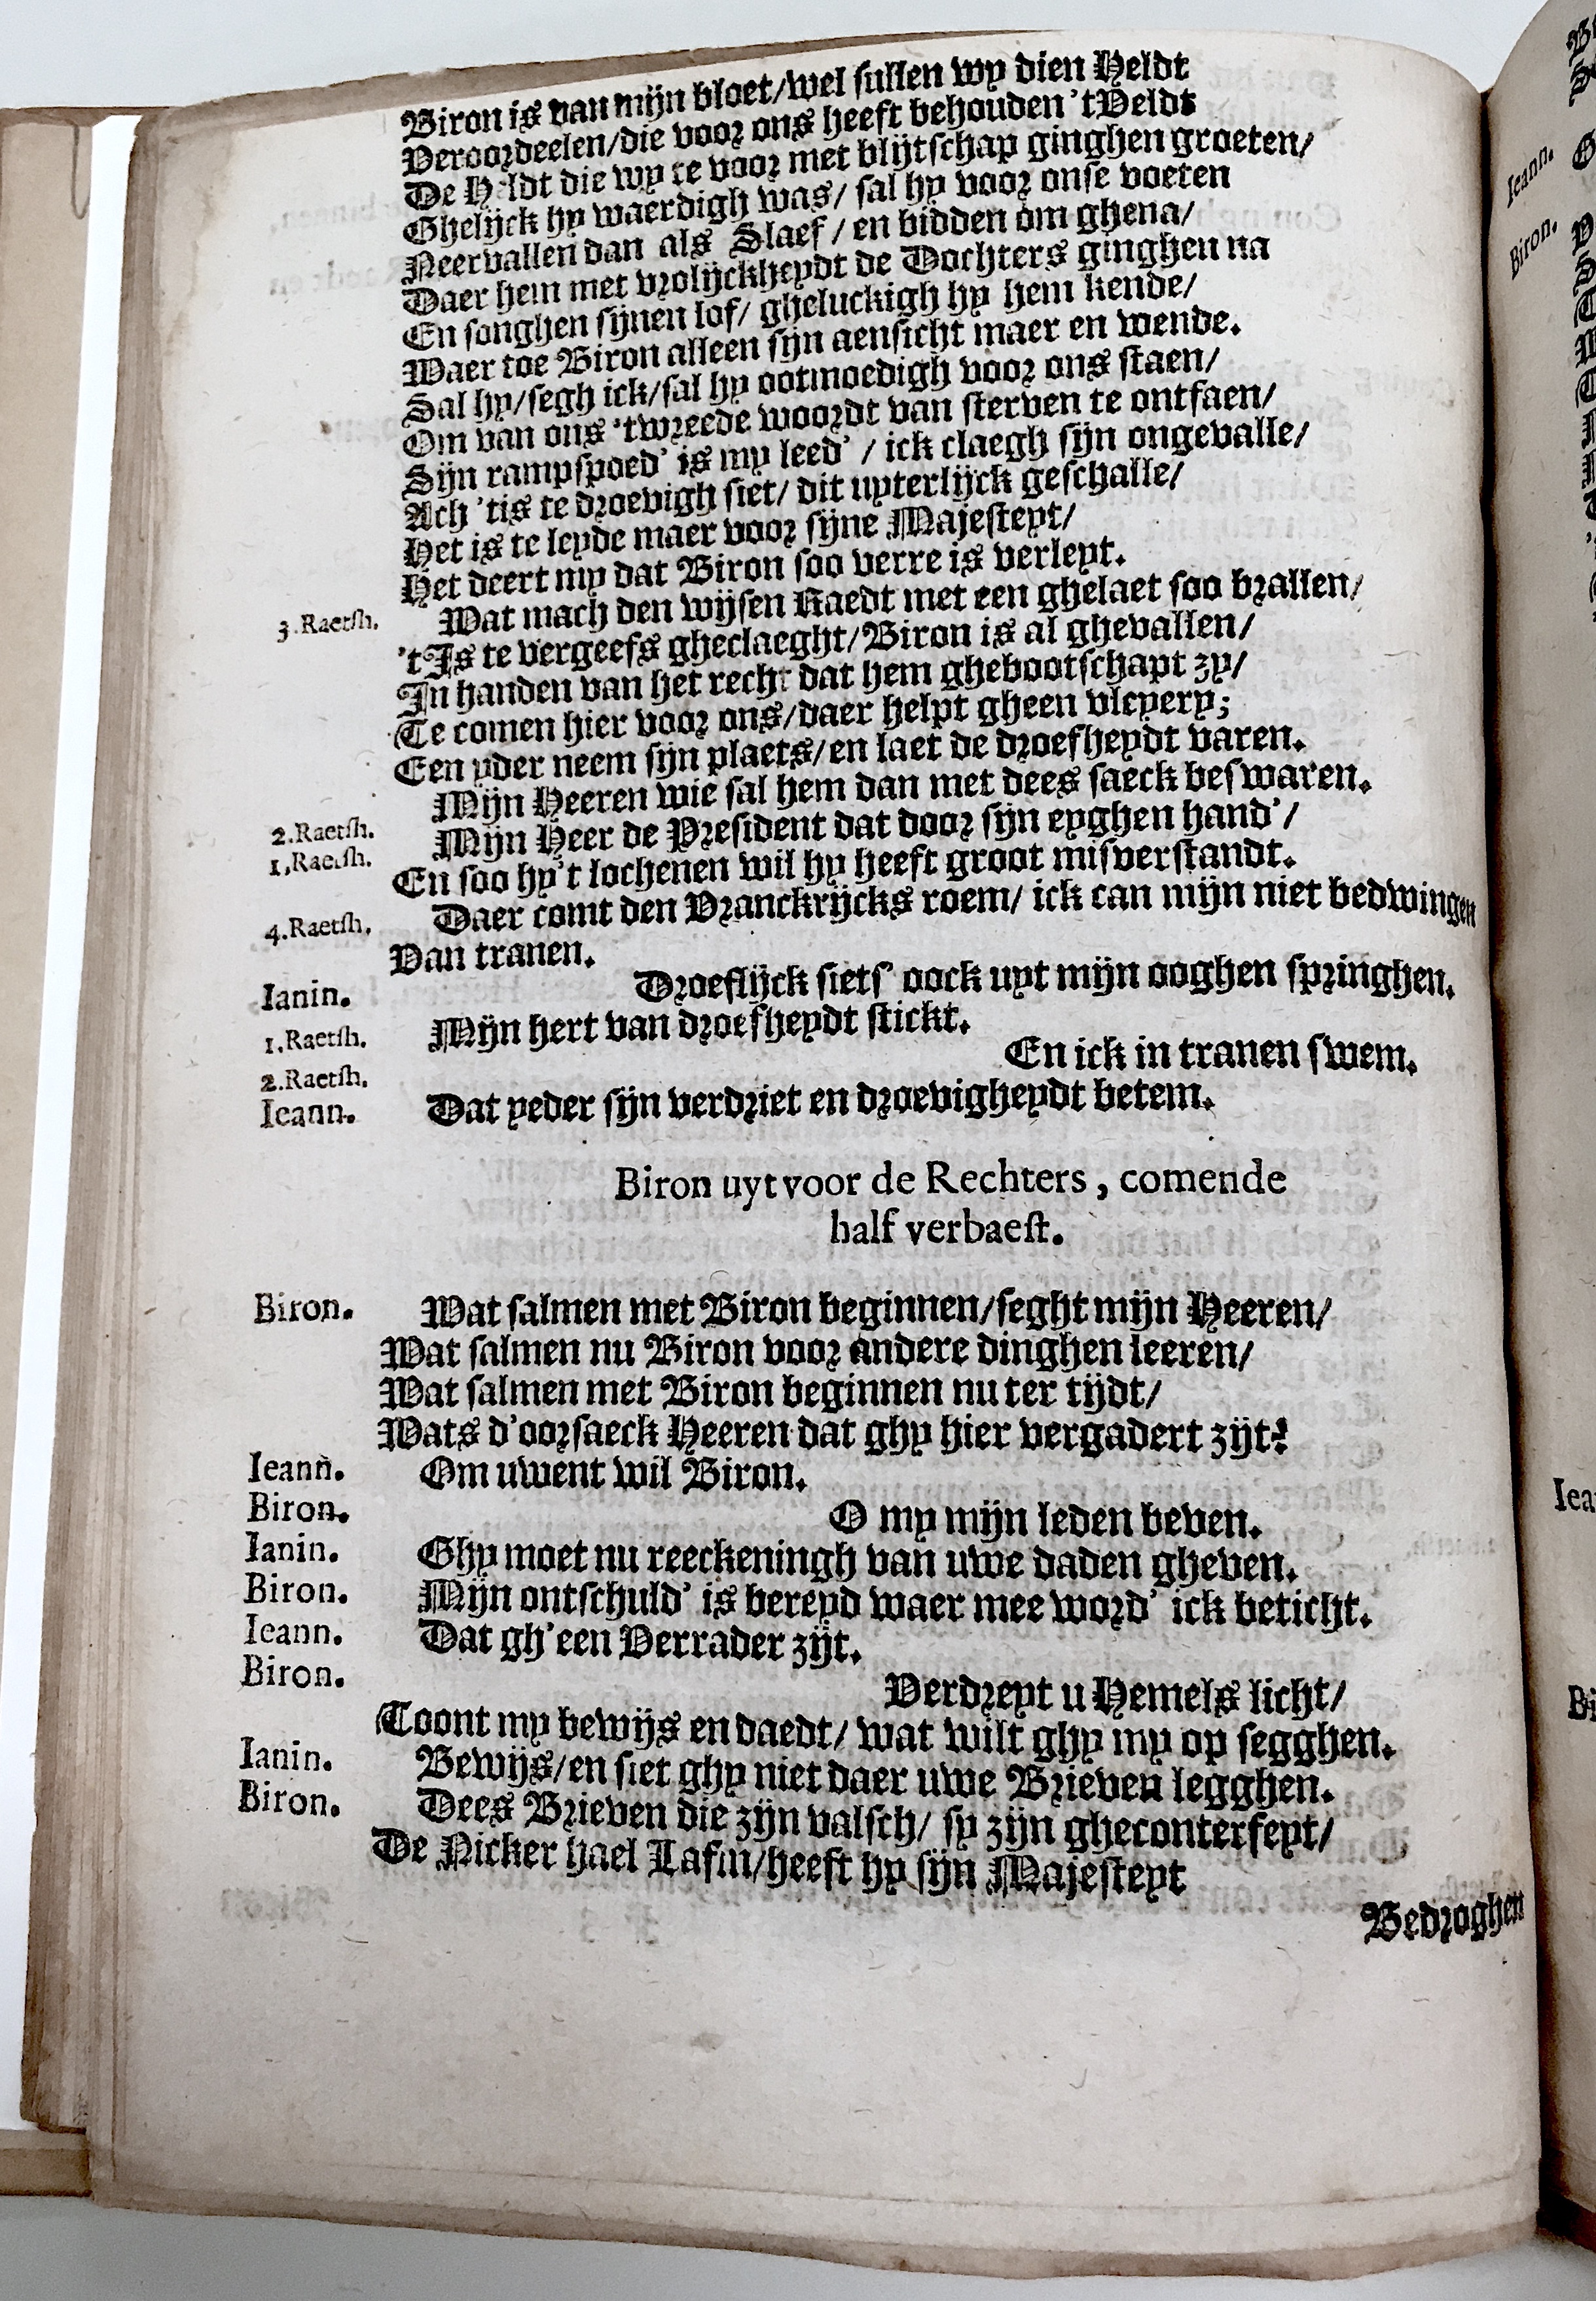 Biron is van mijn bloet/wel sullen wy dien Heldt
Veroordeelen/die voor ons heeft behouden 'tVeldt
De H ldt die wy te voor met blijtschap ginghen groeten/
Ghelijck hy waerdigh was/ sal hy voor onse voeten
Neervallen dan als Slaef/ en bidden om ghena/
Daer hem met vrolijckheydt de Dochters ginghen na
En songhen sijnen lof/ gheluckigh hy hem kende/
Waer toe Biron alleen sijn aensicht maer en wende.
Sal hy/segh ick/sal hy ootmoedigh voor ons staen/
Om van ons 'twreede woordt van sterven te ontfaen/
Sijn rampspoed' is my leed' / ick claegh sijn ongevalle/
Ach 'tis te droevigh siet/ dit uyterlijck geschalle/
Het is te leyde maer voor sijne Majesteyt/
Het deert my dat Biron soo verre is verleyt.
3.Raetsh. Wat mach den wijsen Raedt met een ghelaet soo brallen/
't Is te vergeefs gheclaeght/Biron is al ghevallen/
In handen van het recht dat hem ghebootschapt zy/
Te comen hier voor ons/daer helpt gheen vleyery;
Een yder neem sijn plaets/en laet de droefheydt varen.
2.Raetsh. Mijn Heeren wie sal hem dan met dees saeck beswaren.
1.Raetsh. Mijn Heer de President dat door sijn eyghen hand'/
En soo hy't lochenen wil hy heeft groot misverstandt.
4.Raetsh. Daer comt den Vranckrijcks roem/ ick can mijn niet bedwingen
Van tranen.
Ianin. Droeflijck siets' oock uyt mijn ooghen springhen.
1.Raetsh. Mijn hert van droefheydt stickt.
2.Raetsh. En ick in tranen swem.
Ieann. Dat yeder sijn verdriet en droevigheydt betem.
Biron uyt voor de Rechters, comende
half verbaest.
Biron. Wat salmen met Biron beginnen/seght mijn Heeren/
Wat salmen nu Biron voor andere dinghen leeren/
Wat salmen met Biron beginnen nu ter tijdt/
Wats d'oorsaeck Heeren dat ghy hier vergadert zijt?
Ieann. Om uwent wil Biron.
Biron. O my mijn leden beven.
Ianin. Ghy moet nu reeckeningh van uwe daden gheven.
Biron. Mijn ontschuld' is bereyd waer mee word' ick beticht.
Ieann. Dat gh'een Verrader zijt.
Biron. Verdreyt u Hemels licht/
Toont my bewijs en daedt/ wat wilt ghy my op segghen.
Ianin. Bewijs/en siet ghy niet daer uwe Brieven legghen.
Biron. Dees Brieven die zijn valsch/ sy zijn gheconterfeyt/
De Nicker hael Lafin/heeft hy sijn Majesteyt
Bedroghen
Ieann.
Biron.